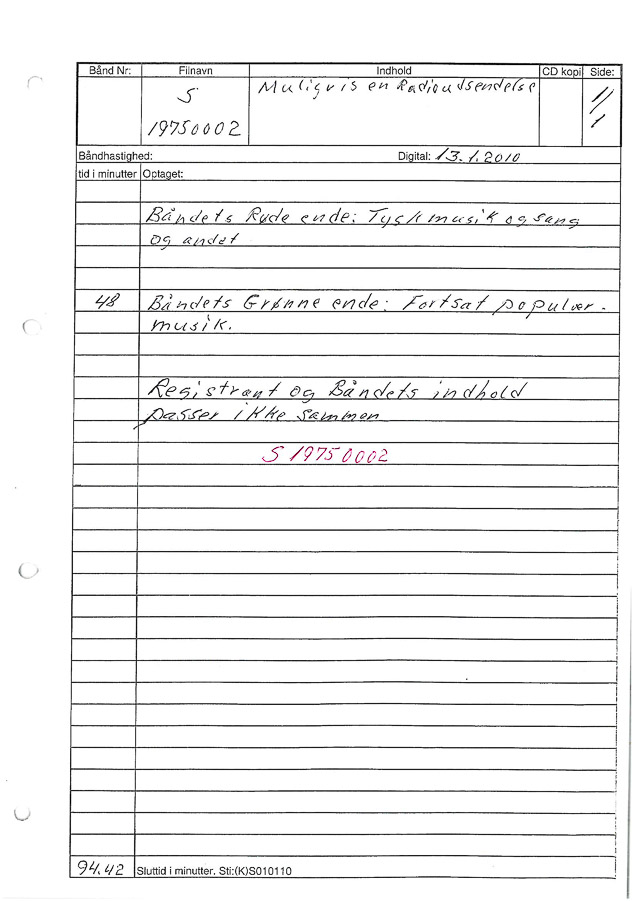 Bånd Nr: Filnavn Indhold CD kopi Side:
S Muligvis en Radioudsendelse 1/1
19750002
Båndhastighed: Digital: 13.1.2010
tid i minutter Optaget:
Båndets Røde ende: Tysk musik og sang
og andet
48 Båndets Grønne ende: Fortsat populær-
musik.
Registrant og Båndets indhold
passer ikke sammen
S 19750002
94.42 Sluttid i minutter. Sti:(K)S010110